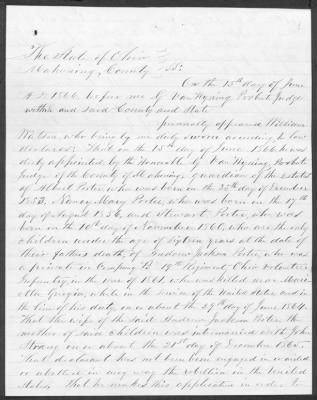 The State of Ohio
Mahoning County SS:
On the 15th day of June
A.D. 1866 before me G Van Hyning Probate Judge
within and said County and State
personally appeared William
who being by me duly sworn according to law
declares: That on the 15th day of June 1866 he was
duly appointed by the Honorable G Van Hyning, Probate
Judge of the County of Mahoning guardian of the estates
of Albert Porter who was born on the 25th day of December
1853, Nancy Mary Porter, who was born on the 17th
day of August 1856, and Stewart Porter, who was
born on the 10th day of November 1860, who are the only
children under the age of sixteen years at the date of
their father death, of Andrew Jackson Porter, who was
a private in Company B 19th Regiment Ohio Volunteer
Infantry, in the war of 1861 who was killed near Mari-
etta Georgia, while in the service of the United States and in
the line of his duty, on or about the 29th day of June 1864.
That the wife of the said Andrew Jackson Porter, the
mother of said children was intermarried with John
Strong on or about the 21st day of December 1865.
That declarant has not been engaged in or aided
or abetted in any way the rebellion in the United
States. That he makes this application in order to